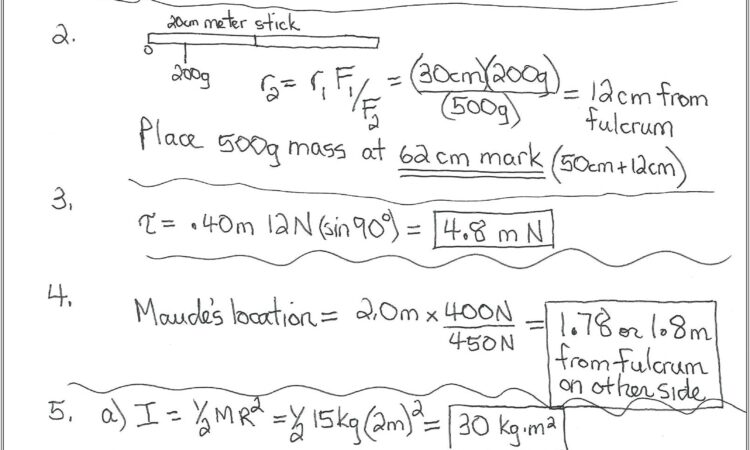 2.
20cm meter stick
0
200g
r₂ = r₁ F₁/F₂ = (30cm)(200g)/(500g) = 12cm from fulcrum
Place 500g mass at 62cm mark (50cm+12cm)
3.
τ = .40m 12N (sin 90°) = 4.8 m N
4.
Maude's location = 2.0m × 400N/450N = 1.78 or 1.8m
from fulcrum
on other side
5. a) I = ½ MR² = ½ 15kg (2m)² = 30 kg·m²